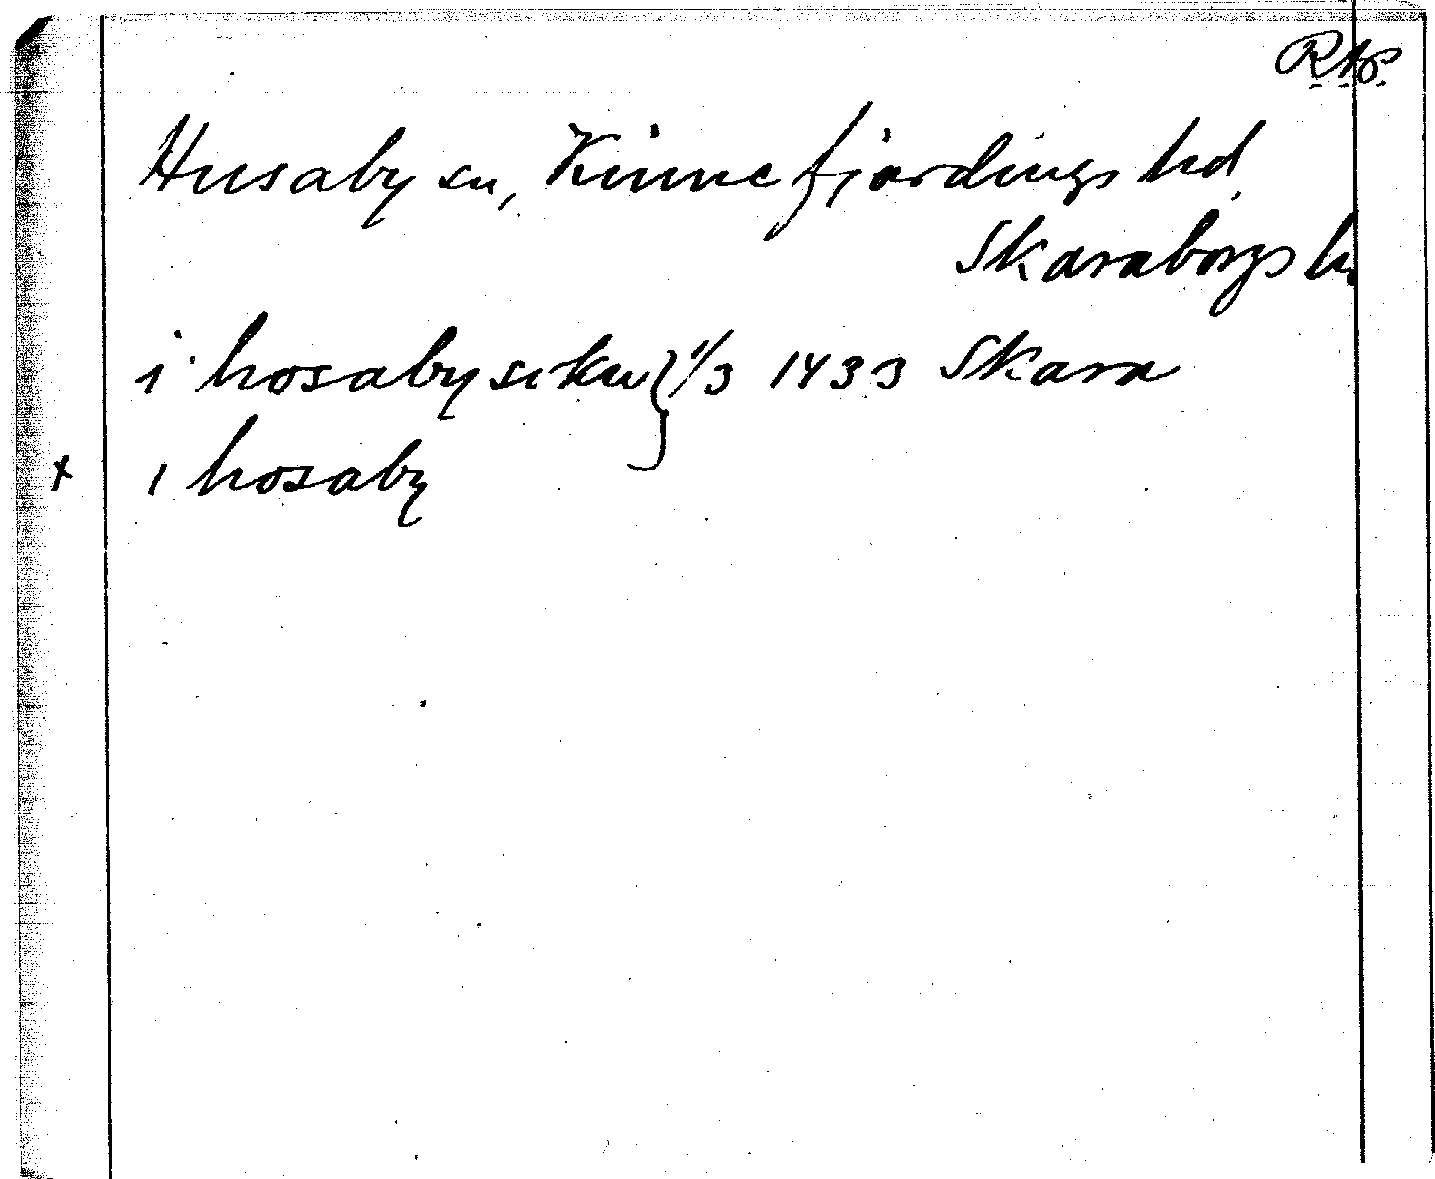 RAp.
Husaby sn, Kinnefjärdings hd,
Skaraborgs l.
i hosaby sokn } 1/3 1433 Skara
x i hosaby